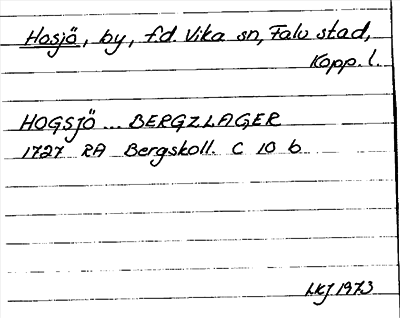 Hosjö, by, f.d. Vika sn, Falu stad,
Kopp. l.
HOGSJÖ ... BERGZLAGER
1727 RA Bergskoll. C 10 b
LKJ 1973